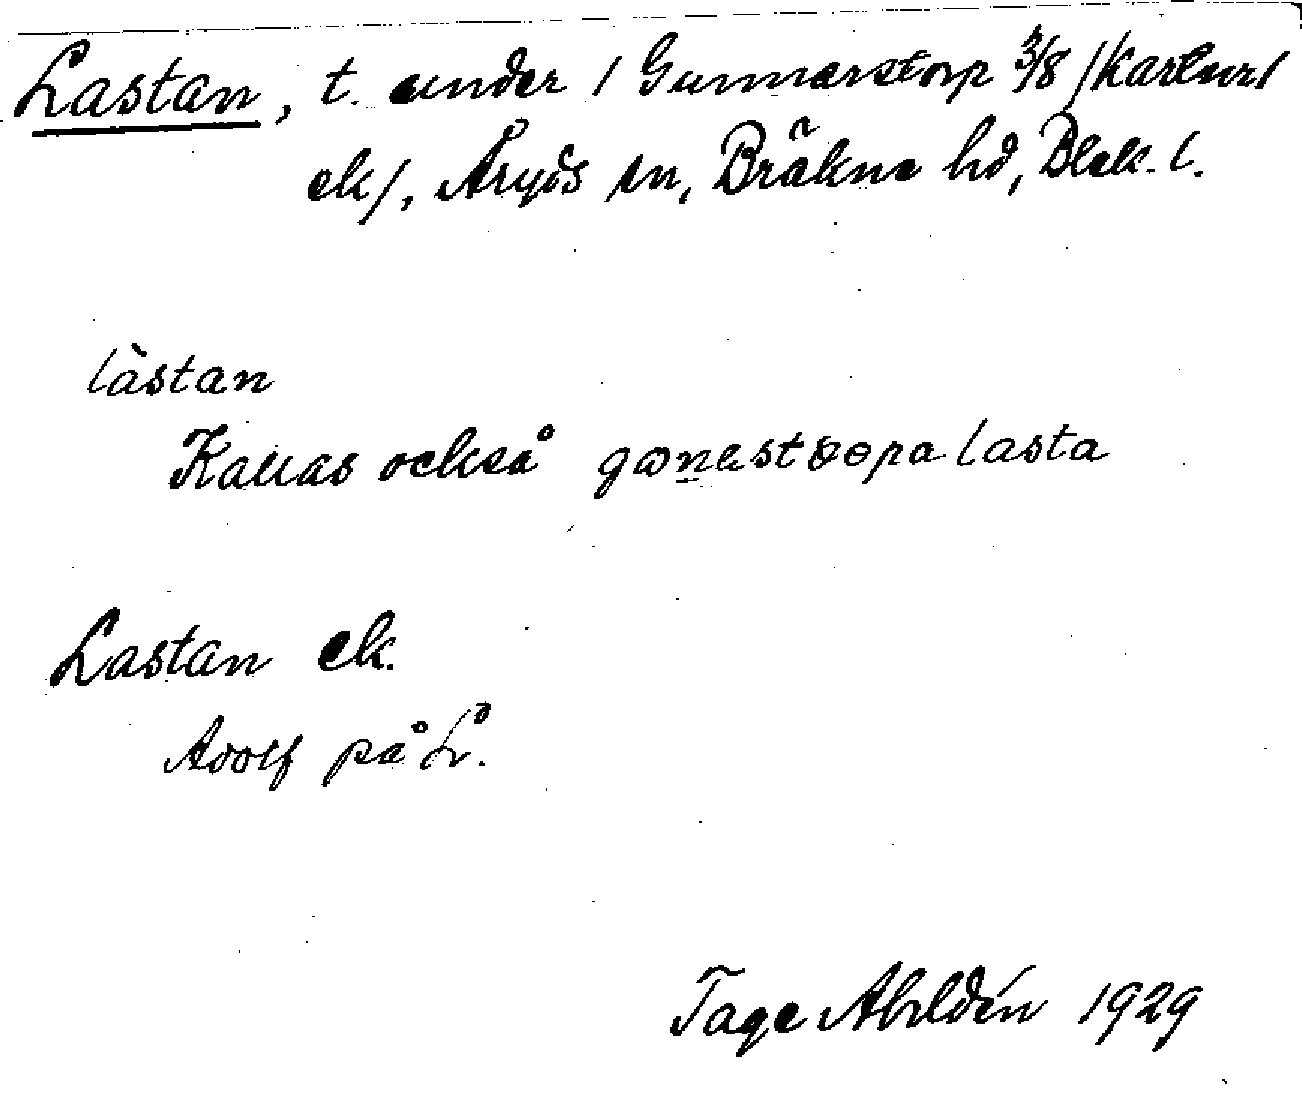 Lastan, t. under / Gunnarstorp 3/8 /Karlsw/
ek/, Åryds sn, Bräkne hd, Blek. l.
làstan
Kallas också gonestoopa lasta
Lastan ek.
Adolf på L.
Tage Ahldén 1929